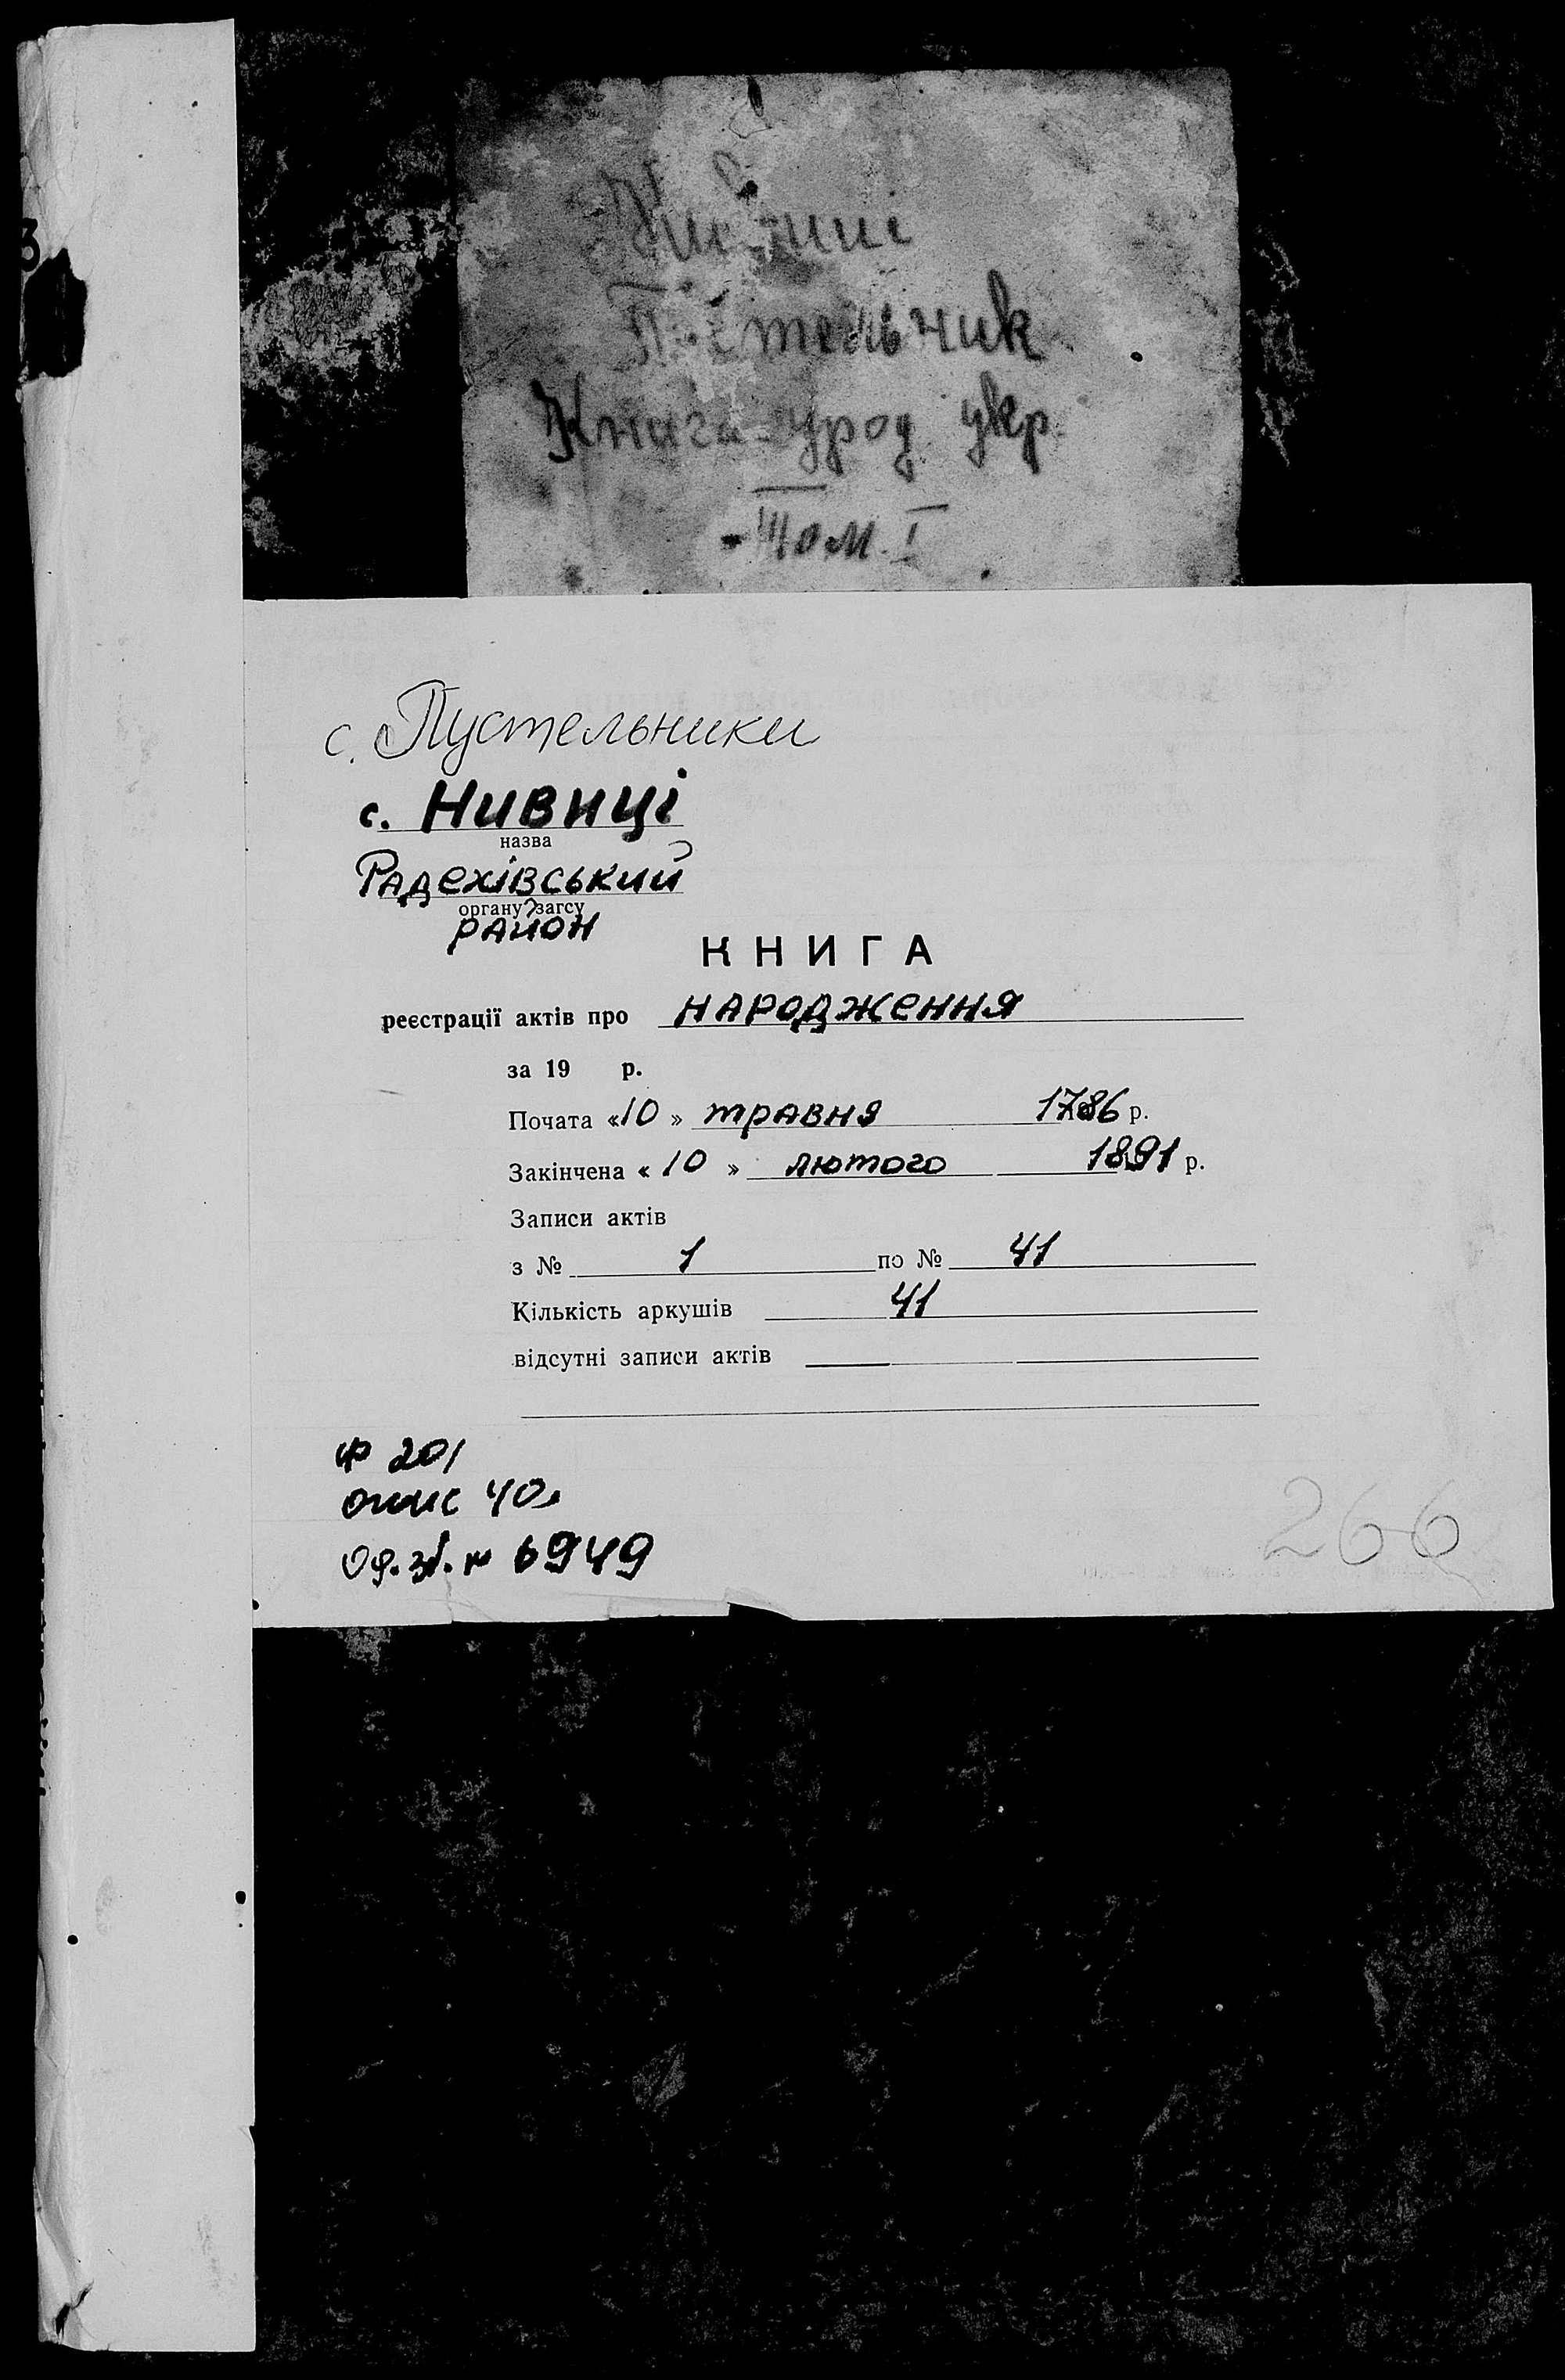 Книга урод укр.
Том. I
с. Пустельники
с. Нивиці
назва
Радехівський
органу загсу
район
КНИГА
реєстрації актів про народження
за 19 р.
Почата «10» травня 1786 р.
Закінчена «10» лютого 1891 р.
Записи актів
з № 1 по № 41
Кількість аркушів 41
відсутні записи актів
ф 201
опис 40а
Од. зб. № 6949
266
3